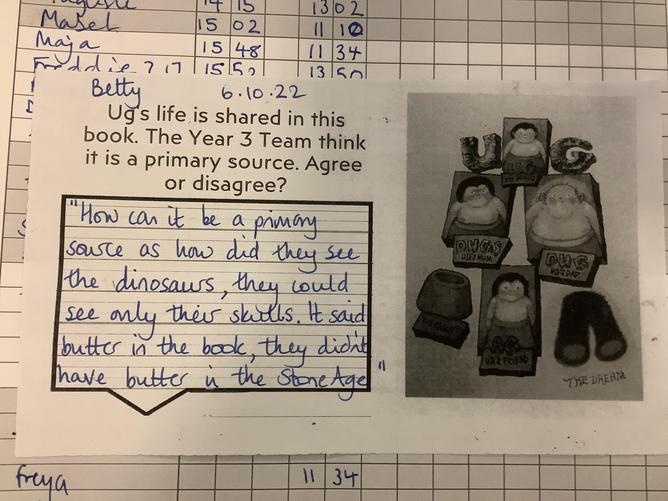 14 15 13 02
Mabel 15 02 11 10
Maja 15 48 11 34
Freddie 15 52 13 50
Betty 6.10.22
Ug's life is shared in this
book. The Year 3 Team think
it is a primary source. Agree
or disagree?
"How can it be a primary
source as how did they see
the dinosaurs, they could
see only their skulls. It said
butter in the book, they didn't
have butter in the Stone Age"
UG
UG
DUGS
UG'S MUM
DUG
UG'S DAD
AG
UG'S FRIEND
THE DREAM
Freya 11 34